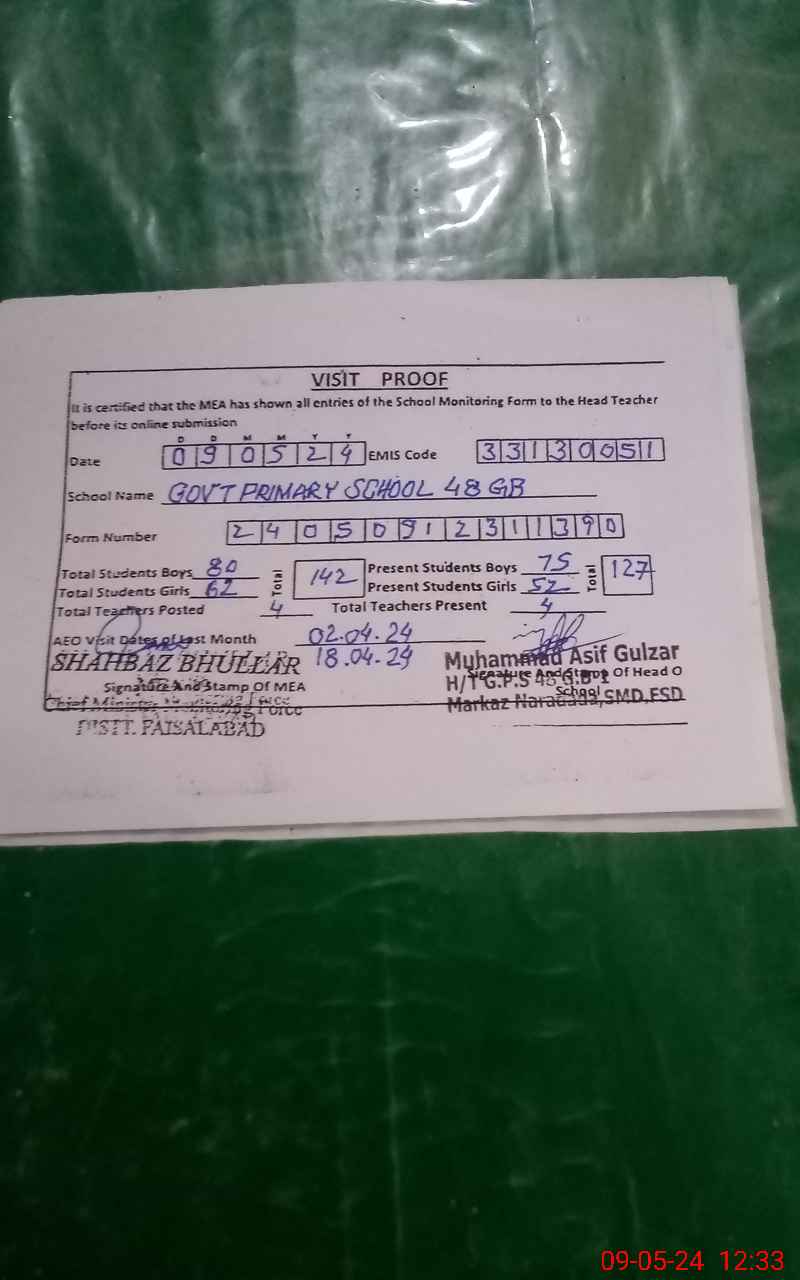 VISIT PROOF
It is certified that the MEA has shown all entries of the School Monitoring Form to the Head Teacher
before its online submission
D D M M Y Y
Date 090524 EMIS Code 33130051
School Name GOVT PRIMARY SCHOOL 48 GB
Form Number 24050912311390
Total Students Boys 80 Total 142 Present Students Boys 75 Total 127
Total Students Girls 62 Present Students Girls 52
Total Teachers Posted 4 Total Teachers Present 4
AEO Visit Dates of Last Month 02.04.24
18.04.24
SHAHBAZ BHULLAR
Signature And Stamp Of MEA
Chief Minister Monitoring Force
DISTT. FAISALABAD
Muhammad Asif Gulzar
Signature And Stamp Of Head O
H/T G.P.S 48 G.B
School
Markaz Naradada,SMD,FSD
09-05-24 12:33